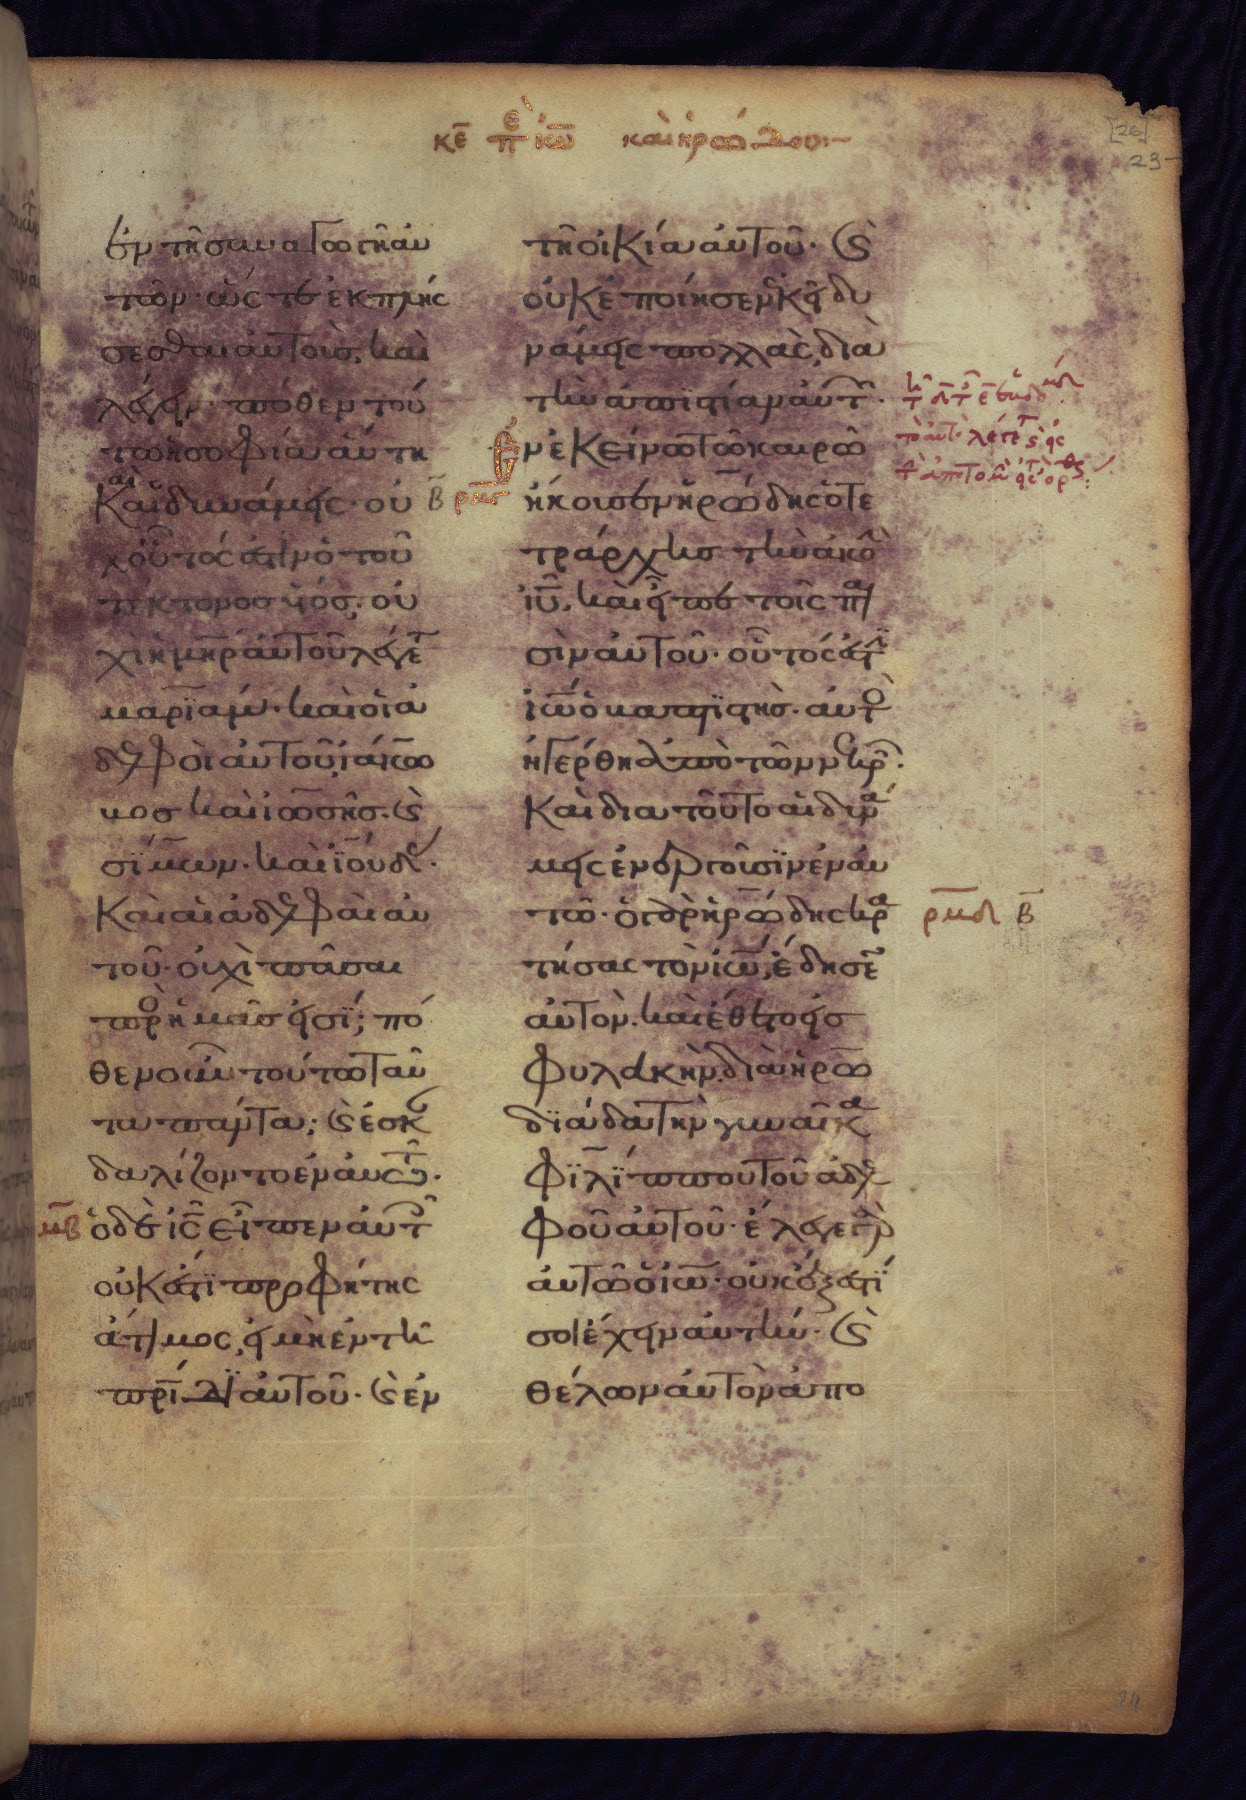 κε̄ πὲ ἰω̄ καὶ ἡρώδου:~
ἐν τῆ συναγωγῆ αὐ
τῶν· ὡς τε ἐκπλής
σεσθαι αὐτοὺς, καὶ
λέγειν· πόθεν τού
τω ἡ σοφία αὕτη
Καὶ αἱ δυνάμεις· οὐ
χ οὗτός ἐστιν ὁ τοῦ
τέκτονος υἱός; οὐ
χὶ ἡ μη̄ρ αὐτοῦ λέγετ
μαριὰμ· καὶ οἱ ἀ
δελφοὶ αὐτοῦ, ἰάκω
βος καὶ ἰωσῆς· κ̀
σίμων· καὶ ἰούδ·
Καὶ αἱ ἀδελφαὶ αὐ
τοῦ· οὐχὶ πᾶσαι
πρὸ ἡμᾶς εἰσί; πό
θεν οὖν τούτω ταῦ
τα πάντα; κ̀ ἐσκ
δαλίζοντο ἐν αὐτῶ·
μ̄β ὁ δὲ ις̄ εἶπεν αὐτ
οὐκ ἔστι προφήτης
ἄτιμος, εἰ μὴ ἐν τῆ
πρῑδι αὐτοῦ· κ̀ ἐν
τῆ οἰκία αὐτοῦ· κ̀
οὐκ ἐποίησεν ἐκεῖ δυ
νάμεις πολλὰς, διὰ
τὴν ἀπιστίαν αὐτ·
Ἐν ἐκείνω τῶ καιρῶ
β̄ ρμγ ἤκουσεν ἡρώδης ὁ τε
τράρχης τὴν ἀκο
ιῡ, καὶ εἶπε τοῖς πα
σὶν αὐτοῦ· οὗτός ἐστ
ἰω̄ ὁ βαπτιστής· αὐτ
ἠγέρθη ἀπὸ τῶν νεκρ·
Καὶ διατοῦτο αἱ δυνά
μεις ἐνεργοῦσιν ἐν αὐ
τῶ· ὁ γὰρ ἡρώδης κρα ρμδ β̄
τήσας τὸν ἰω̄, ἔδησε
αὐτὸν· καὶ ἔθετο εἰς
φυλακὴν, διὰ ἡρω
διάδα τὴν γυναῖκα
φιλίππου τοῦ ἀδελ
φοῦ αὐτοῦ· ἔλεγε γὰρ
αὐτῶ ὁ ἰω̄· οὐκ ἔξεστί
σοι ἔχειν αὐτὴν· κ̀
θέλων αὐτὸν ἀπο
[26]
23
24